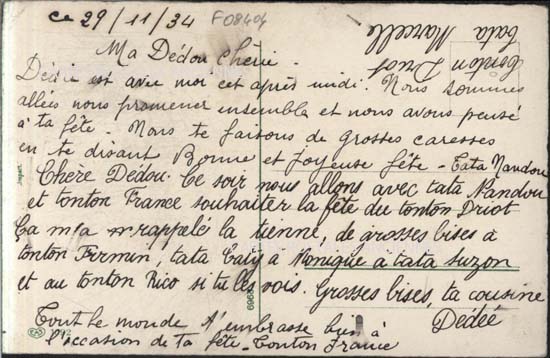 Ce 29/11/34 F08404
Ma Dédou Chérie -
Dédée est avec moi cet après midi. Nous sommes
allées nous promener ensemble et nous avons pensé
à ta fête - Nous te faisons de grosses caresses
en te disant Bonne et joyeuse fête - Tata Nandou
Chère Dédou. Ce soir nous allons avec tata Nandou
et tonton France souhaiter la fête du tonton Driot
Ça m'a rappelé la tienne, de grosses bises à
tonton Firmin, tata Caty à Monique à tata Suzon
et au tonton Rico si tu les vois. Grosses bises, ta cousine
Dédée
Tout le monde t'embrasse bien à
l'occasion de ta fête - Tonton France
Tonton Driot
tata Marcelle